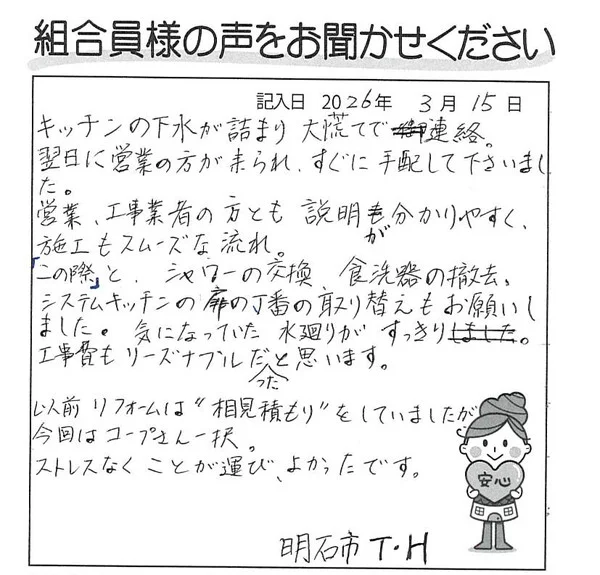 組合員様の声をお聞かせください
記入日 2026年 3月 15日
キッチンの下水が詰まり 大慌てで連絡。
翌日に営業の方が来られ、すぐに手配して下さいまし
た。
営業、工事業者の方とも 説明が分かりやすく、
施工もスムーズな流れ。
「この際」と、シャワーの交換、食洗器の撤去、
システムキッチンの扉の丁番の取り替えもお願いし
ました。気になっていた 水廻りが すっきり。
工事費もリーズナブルだったと思います。
以前リフォームは“相見積もり”をしていましたが
今回はコープさん一択。
ストレスなく ことが運び、よかったです。
安心
明石市 T・H